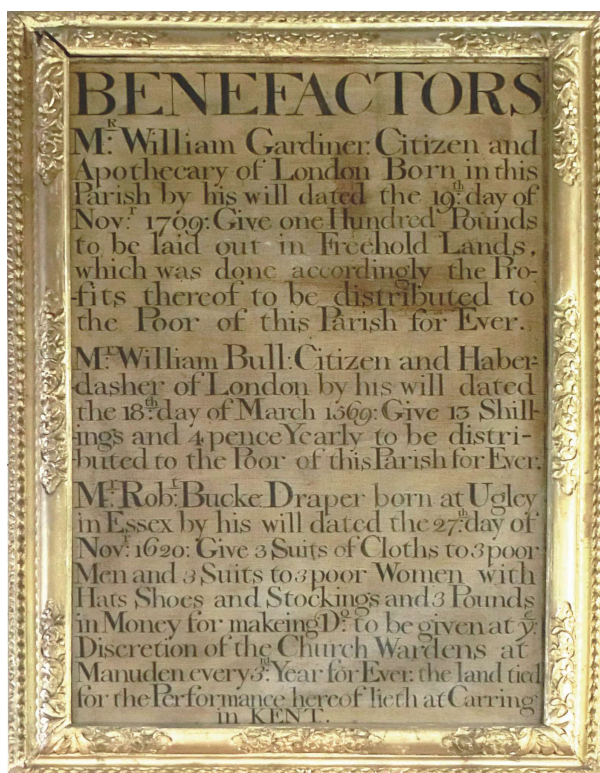 BENEFACTORS
Mr. William Gardiner: Citizen and
Apothecary of London Born in this
Parish by his will dated the 19th. day of
Novr. 1769: Give one Hundred Pounds
to be laid out in Freehold Lands,
which was done accordingly the Pro-
-fits thereof to be distributed to
the Poor of this Parish for Ever.
Mr. William Bull: Citizen and Haber-
-dasher of London by his will dated
the 18th. day of March 1569: Give 13 Shill-
-ings and 4 pence Yearly to be distri-
-buted to the Poor of this Parish for Ever.
Mr. Robt. Bucke Draper born at Ugley
in Essex by his will dated the 27th. day of
Novr. 1620: Give 3 Suits of Cloths to 3 poor
Men and 3 Suits to 3 poor Women with
Hats Shoes and Stockings and 3 Pounds
in Money for makeing Do. to be given at ye.
Discretion of the Church Wardens at
Manuden every 3rd. Year for Ever: the land tied
for the Performance hereof lieth at Carring
in KENT.